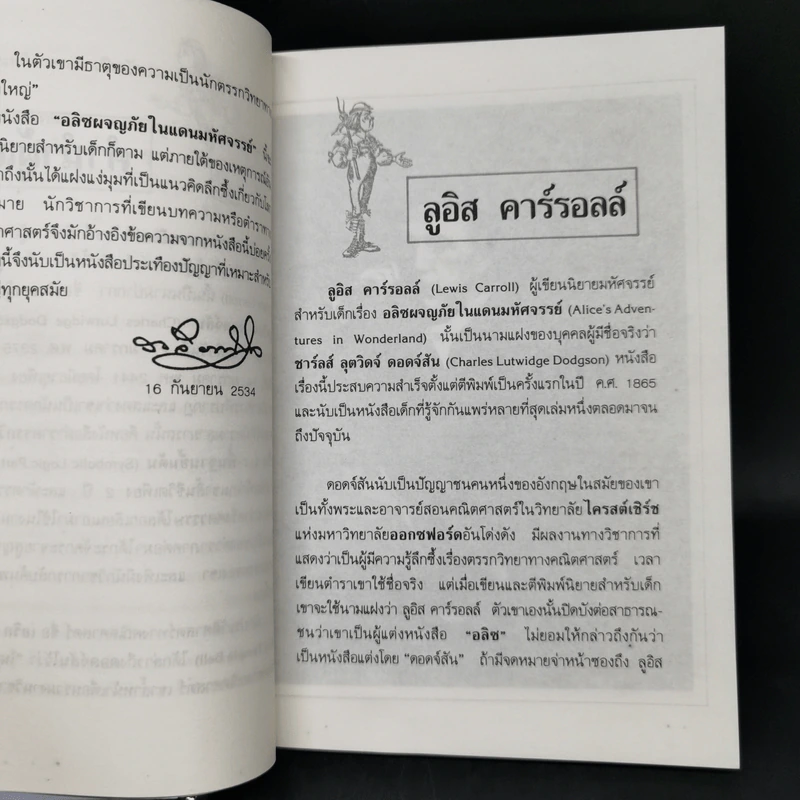 ในตัวเขามีธาตุของความเป็นนักตรรกวิทยา
ใหญ่"
หนังสือ "อลิซผจญภัยในแดนมหัศจรรย์"
นิยายสำหรับเด็กก็ตาม แต่ภายใต้ของเหตุการณ์
ถึงนั้นได้แฝงแง่มุมที่เป็นแนวคิดลึกซึ้งเกี่ยวกับ
มาย นักวิชาการที่เขียนบทความหรือตำรา
ศาสตร์จึงมักอ้างอิงข้อความจากหนังสือนี้บ่อยครั้ง
นี้จึงนับเป็นหนังสือประเทืองปัญญาที่เหมาะสำหรับ
ทุกยุคสมัย
16 กันยายน 2534
ลูอิส คาร์รอลล์
ลูอิส คาร์รอลล์ (Lewis Carroll) ผู้เขียนนิยายมหัศจรรย์
สำหรับเด็กเรื่อง อลิซผจญภัยในแดนมหัศจรรย์ (Alice's Adven-
tures in Wonderland) นั้นเป็นนามแฝงของบุคคลผู้มีชื่อจริงว่า
ชาร์ลส์ ลุตวิดจ์ ดอดจ์สัน (Charles Lutwidge Dodgson) หนังสือ
เรื่องนี้ประสบความสำเร็จตั้งแต่ตีพิมพ์เป็นครั้งแรกในปี ค.ศ. 1865
และนับเป็นหนังสือเด็กที่รู้จักกันแพร่หลายที่สุดเล่มหนึ่งตลอดมาจน
ถึงปัจจุบัน
ดอดจ์สันนับเป็นปัญญาชนคนหนึ่งของอังกฤษในสมัยของเขา
เป็นทั้งพระและอาจารย์สอนคณิตศาสตร์ในวิทยาลัยไครสต์เชิร์ช
แห่งมหาวิทยาลัยออกซฟอร์ดอันโด่งดัง มีผลงานทางวิชาการที่
แสดงว่าเป็นผู้มีความรู้ลึกซึ้งเรื่องตรรกวิทยาทางคณิตศาสตร์ เวลา
เขียนตำราเขาใช้ชื่อจริง แต่เมื่อเขียนและตีพิมพ์นิยายสำหรับเด็ก
เขาจะใช้นามแฝงว่า ลูอิส คาร์รอลล์ ตัวเขาเองนั้นปิดบังต่อสาธารณ-
ชนว่าเขาเป็นผู้แต่งหนังสือ "อลิซ" ไม่ยอมให้กล่าวถึงกันว่า
เป็นหนังสือแต่งโดย "ดอดจ์สัน" ถ้ามีจดหมายจ่าหน้าซองถึง ลูอิส